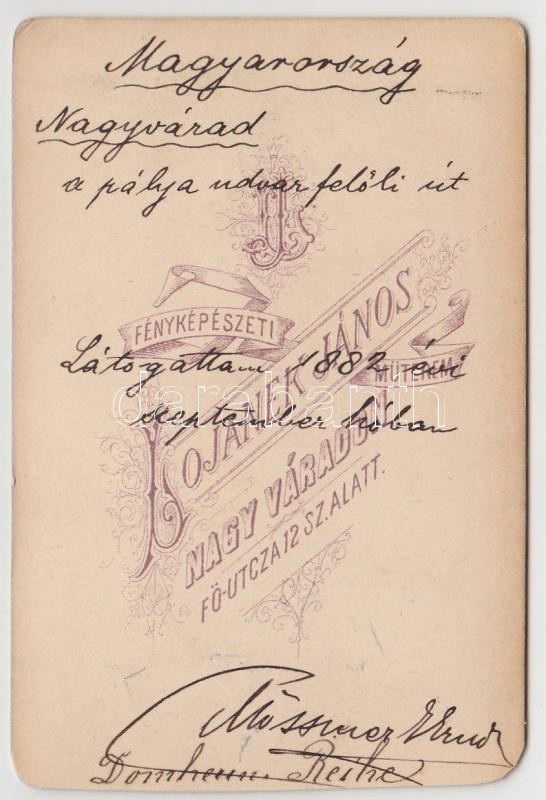 Magyarország
Nagyvárad
a pálya udvar felőli út
FÉNYKÉPÉSZETI
LOJANEK JÁNOS
MŰTERME
Látogattam 1882 évi
september hóban
NAGY VÁRADON
FŐ-UTCZA 12 SZ. ALATT.
Mössmer Ernő
Domherrn Reihe
darabanth